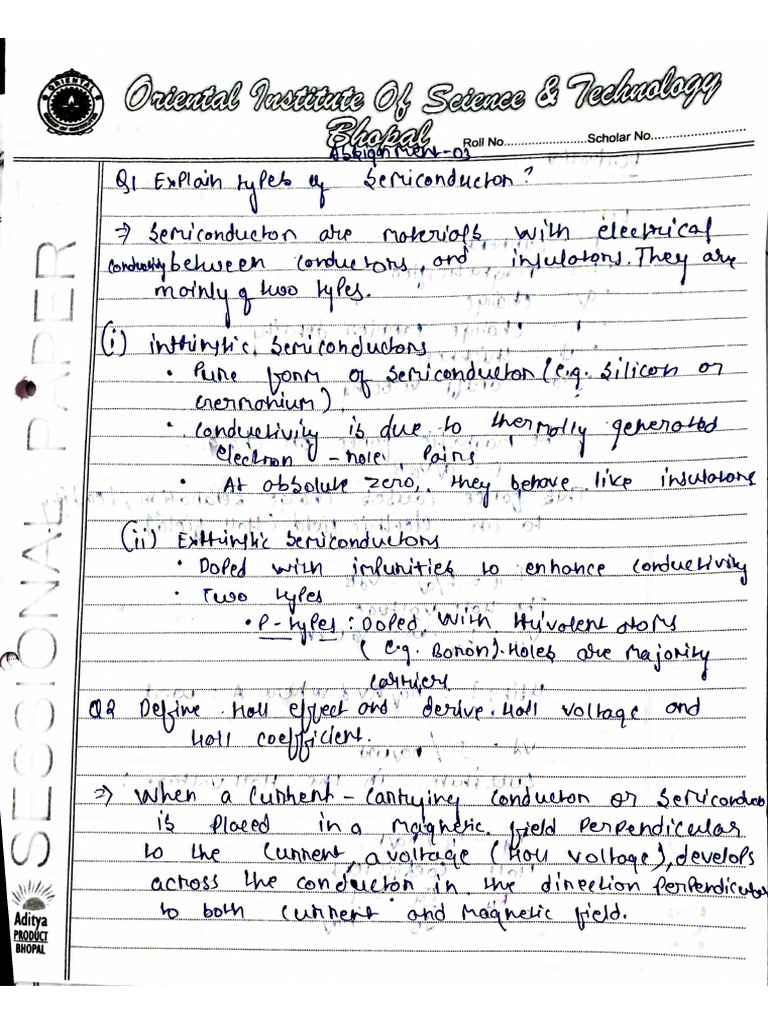 ORIENTAL
Oriental Institute Of Science & Technology
Bhopal
Roll No.................... Scholar No........................
Assignment-03
Q1 Explain types of Semiconductor?
⇒ Semiconductor are materials with electrical
conductivity between conductors and insulators. They are
mainly of two types.
(i) inthinstic Semiconductors
• Pure form of Semiconductor (e.g. Silicon or
Germanium)
• Conductivity is due to thermally generated
electron - hole Pairs
• At absolute zero, they behave like insulators
(ii) Exthinstic Semiconductors
• Doped with impurities to enhance conductivity
• Two types
• P-types : Doped with trivalent atoms
(e.g. Boron). Holes are majority
carriers
Q2 Define Hall effect and derive Hall voltage and
Hall coefficient.
⇒ When a current-carrying conductor or Semiconduc
is placed in a magnetic field perpendicular
to the current, a voltage (Hall voltage), develops
across the conductor in the direction perpendicular
to both current and magnetic field.
SESSIONAL PAPER
Aditya
PRODUCT
BHOPAL